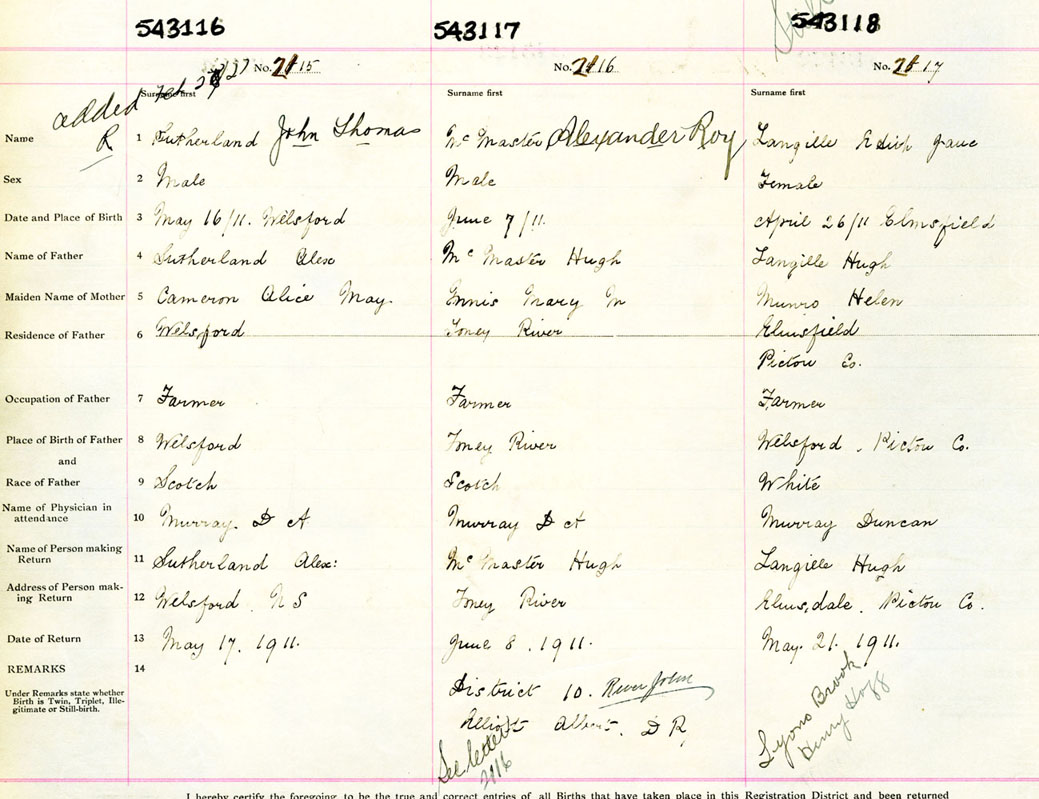 543116 543117 543118
No. 2115 No. 2116 No. 2117
Surname first Surname first Surname first
added Feb 27
R
Name 1 Sutherland John Thomas Mc Master Alexander Roy Langille Edith Jane
Sex 2 Male Male Female
Date and Place of Birth 3 May 16/11. Welsford June 7/11. April 26/11 Elmsfield
Name of Father 4 Sutherland Alex Mc Master Hugh Langille Hugh
Maiden Name of Mother 5 Cameron Alice May. Ennis Mary M Munro Helen
Residence of Father 6 Welsford Toney River Elmsfield
Pictou Co.
Occupation of Father 7 Farmer Farmer Farmer
Place of Birth of Father 8 Welsford Toney River Welsford, Pictou Co.
and
Race of Father 9 Scotch Scotch White
Name of Physician in
attendance 10 Murray. D A Murray D A Murray Duncan
Name of Person making
Return 11 Sutherland Alex: Mc Master Hugh Langille Hugh
Address of Person mak-
ing Return 12 Welsford. N S Toney River Elmsdale, Pictou Co.
Date of Return 13 May 17. 1911. June 8. 1911. May. 21. 1911.
REMARKS 14
Under Remarks state whether
Birth is Twin, Triplet, Ille-
gitimate or Still-birth.
District 10. River John
Elliott Albert. D R,
See letter
2116
Lyons Brook
Henry Hogg
I hereby certify the foregoing to be the true and correct entries of all Births that have taken place in this Registration District and been returned